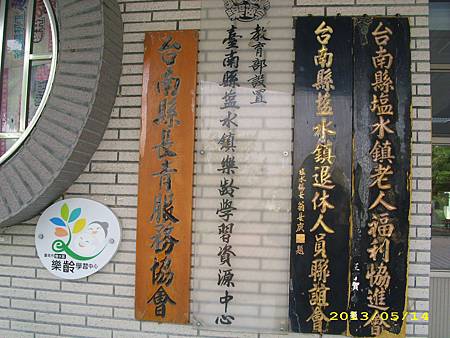 台南縣塭水鎮老人福利協進會
台南縣塭水鎮退休人員聯誼會
題
教育部設置
臺南縣鹽水鎮樂齡學習資源中心
台南縣長青服務協會
樂齡學習中心
2013/05/14